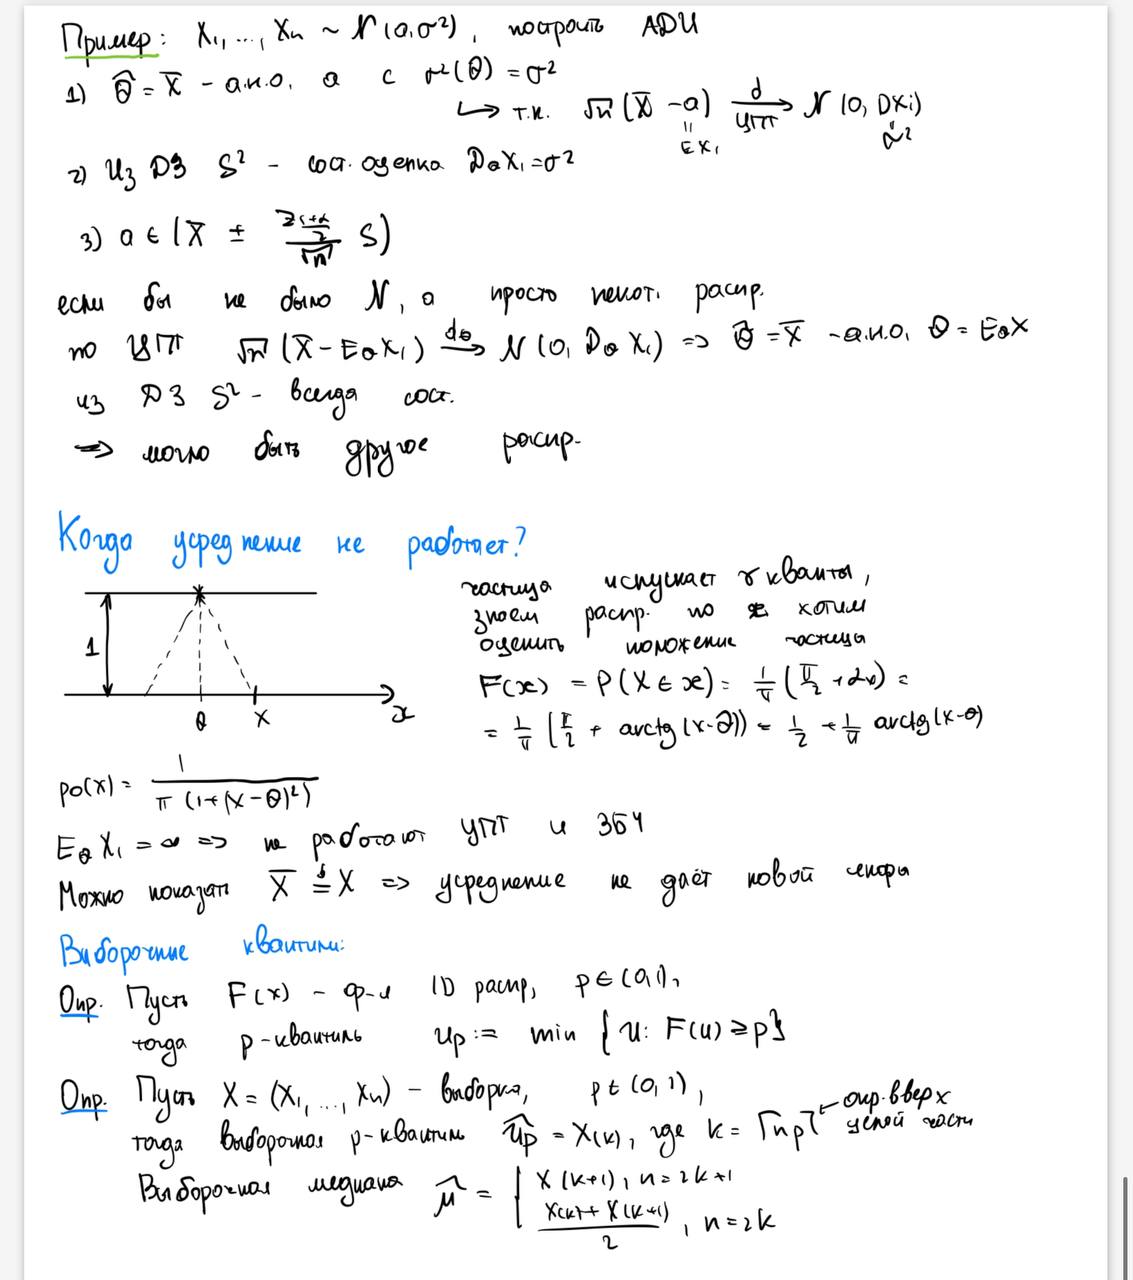 Пример: X₁, ..., Xₙ ~ N(a, σ²), построить АДИ
1) θ̂ = X̄ - а.н.о. a с σ²(θ) = σ²
↳ т.к. √n (X̄ - a) →(d, ЦПТ) N(0, DXi)
" EX₁
" σ²
2) Из ДЗ S² - сост. оценка D_θ X₁ = σ²
3) a ∈ (X̄ ± z_{(1+α)/2}/√n S)
если бы не было N, а просто некот. распр.
по ЦПТ √n (X̄ - E_θ X₁) →(d_θ) N(0, D_θ X₁) => θ̂ = X̄ - а.н.о. θ = E_θ X
из ДЗ S² - всегда сост.
=> могло быть другое распр.
Когда усреднение не работает?
1
θ X x
частица испускает γ кванты,
знаем распр. по x хотим
оценить положение частицы
F(x) = P(X ∈ x) = 1/π (π/2 + α) =
= 1/π (π/2 + arctg(x-θ)) = 1/2 + 1/π arctg(x-θ)
p_θ(x) = 1 / (π (1+(x-θ)²))
E_θ X₁ = ∞ => не работают УПТ и ЗБЧ
Можно показат X̄ =(d) X => усреднение не даёт новой
Выборочные квантили:
Опр. Пусть F(x) - ф-я 1D распр, p ∈ (0,1),
тогда p-квантиль u_p := min {u: F(u) ≥ p}
Опр. Пусть X = (X₁, ..., Xₙ) - выборка, p ∈ (0, 1),
тогда выборочная p-квантиль û_p = X_(k), где k = ⌈np⌉ ← окр. вверх целой части
Выборочная медиана μ̂ = { X_(k+1), n = 2k+1
(X_(k) + X_(k+1))/2, n = 2k